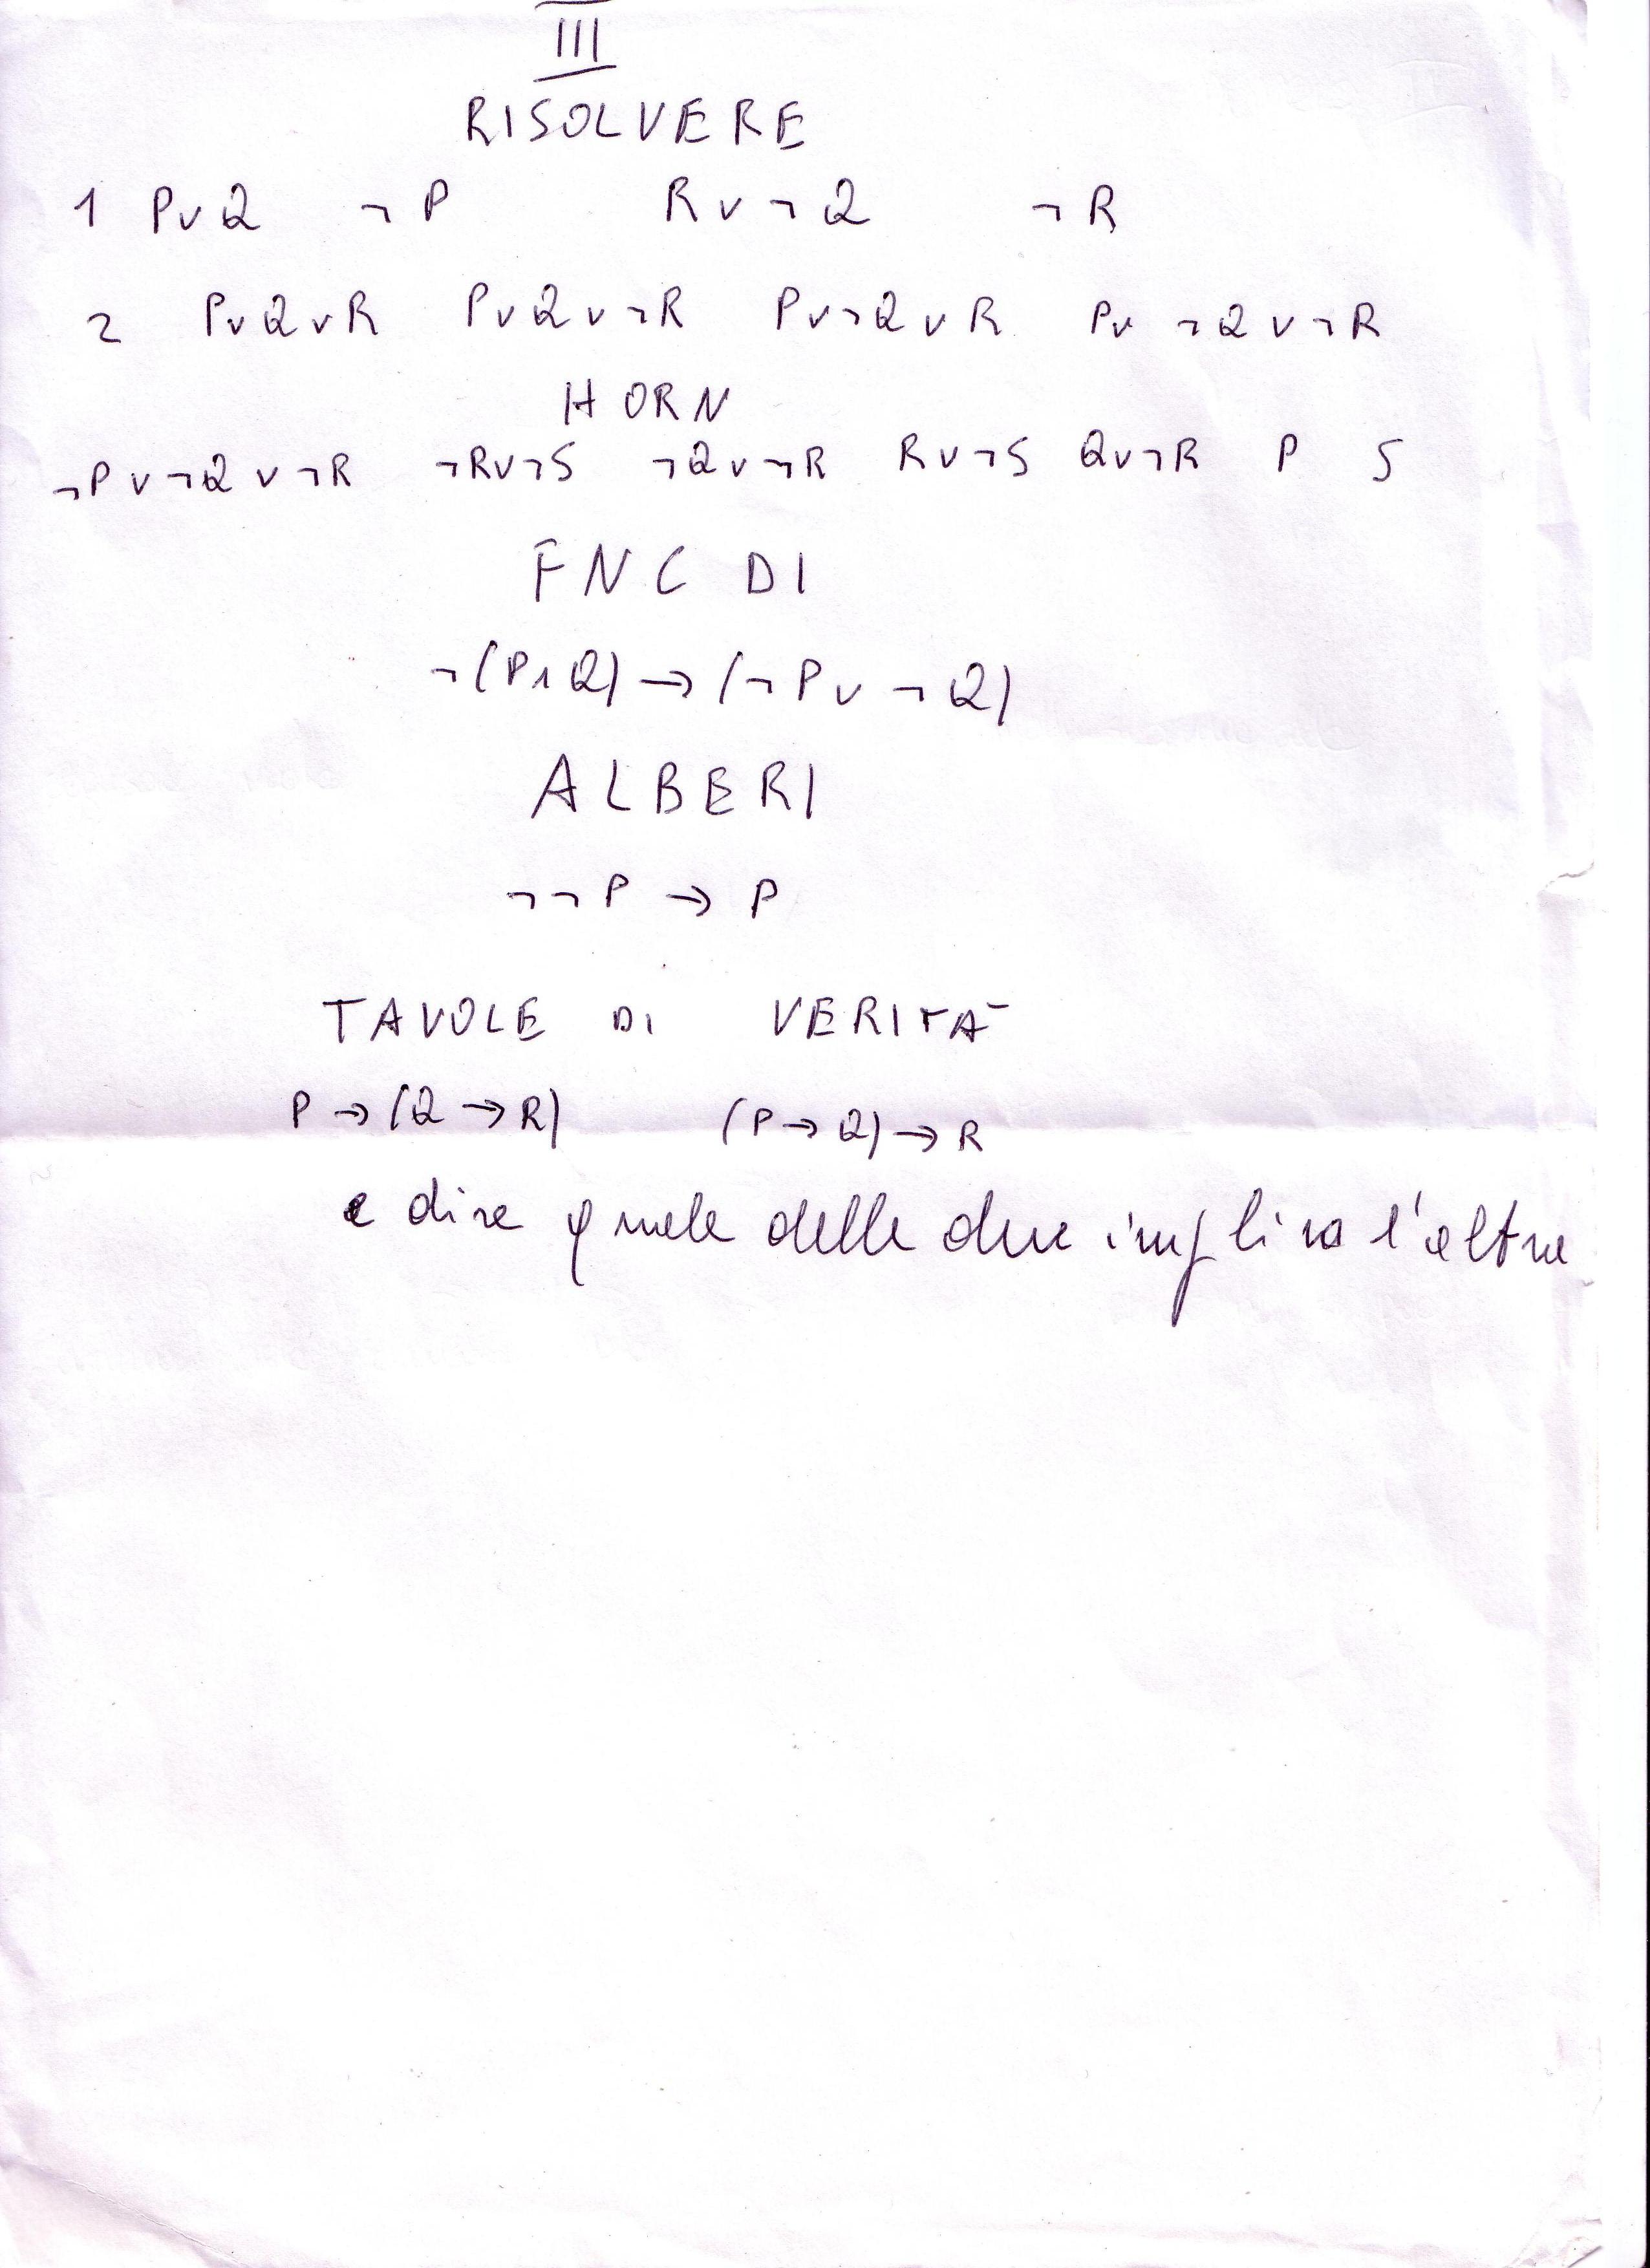 III
RISOLVERE
1 PvQ ¬P Rv¬Q ¬R
2 PvQvR PvQv¬R Pv¬QvR Pv¬Qv¬R
HORN
¬Pv¬Qv¬R ¬Rv¬S ¬Qv¬R Rv¬S Qv¬R P S
FNC DI
¬(P∧Q)→(¬Pv¬Q)
ALBERI
¬¬P→P
TAVOLE DI VERITÀ
P→(Q→R) (P→Q)→R
e dire quale delle due implica l'altra